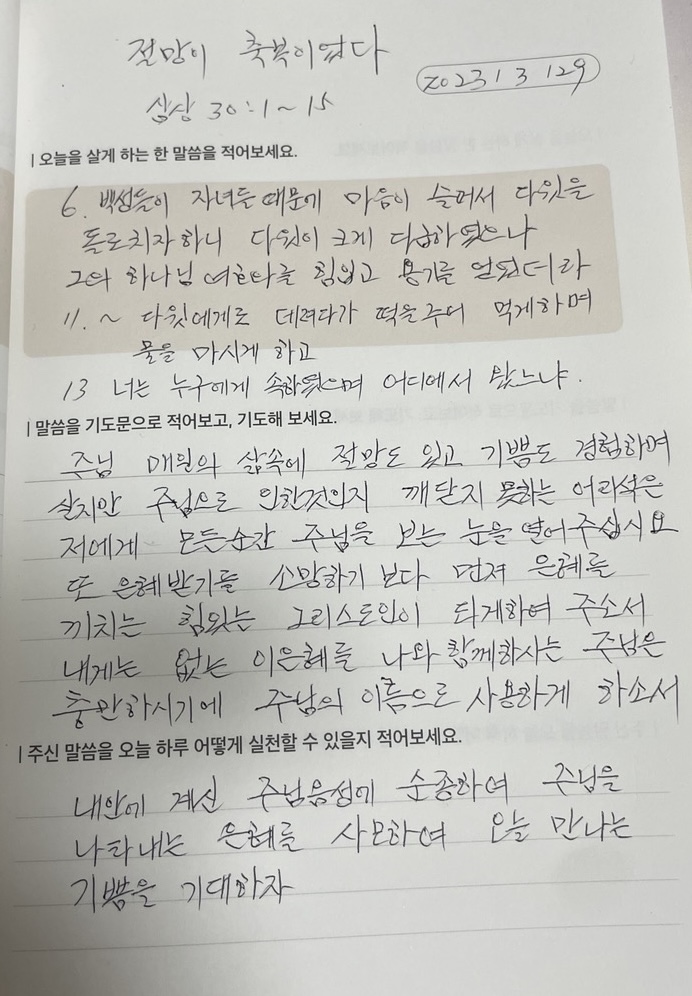 절망이 축복이었다
2023 1 3 129
삼상 30:1~15
| 오늘을 살게 하는 한 말씀을 적어보세요.
6. 백성들이 자녀들 때문에 마음이 슬퍼서 다윗을
돌로치자하니 다윗이 크게 다급하였으나
그의 하나님 여호와를 힘입고 용기를 얻었더라
11. ~ 다윗에게로 데려다가 떡을주어 먹게하며
물을 마시게 하고
13 너는 누구에게 속하였으며 어디에서 왔느냐.
| 말씀을 기도문으로 적어보고, 기도해 보세요.
주님 매일의 삶속에 절망도 있고 기쁨도 경험하며
살지만 주님으로 인한것인지 깨닫지 못하는 어리석은
저에게 모든순간 주님을 보는 눈을 열어주십시요
또 은혜받기를 소망하기 보다 먼저 은혜를
끼치는 힘있는 그리스도인이 되게하여 주소서
내게는 없는 이은혜를 나와 함께하시는 주님은
충만하시기에 주님의 이름으로 사용하게 하소서
| 주신 말씀을 오늘 하루 어떻게 실천할 수 있을지 적어보세요.
내안에 계신 주님음성에 순종하여 주님을
나타내는 은혜를 사모하여 오늘 만나는
기쁨을 기대하자